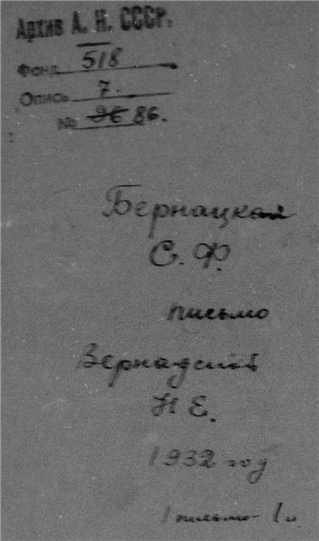 Архив А. Н. СССР.
Фонд 518
Опись 7.
№ 96 86.
Бернацкая
С. Ф.
письмо
Вернадской
Н Е.
1932 год
1 письмо - 1 л